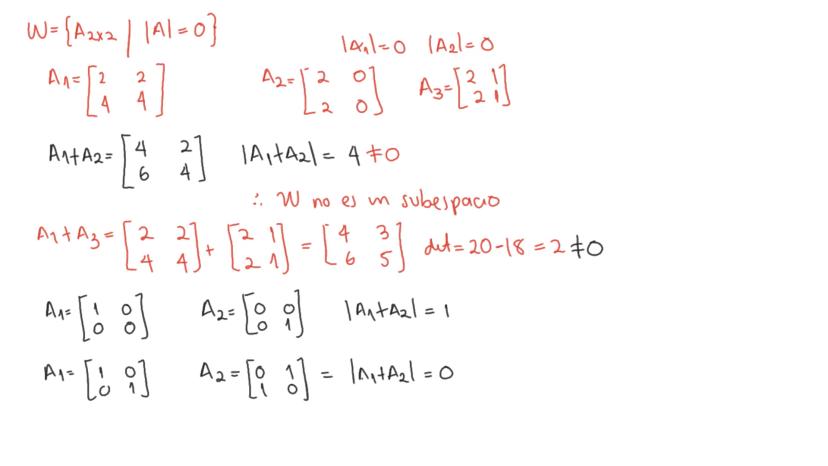 W = {A₂ₓ₂ | |A| = 0}
|A₁| = 0 |A₂| = 0
A₁ = [2 2; 4 4] A₂ = [2 0; 2 0] A₃ = [2 1; 2 1]
A₁ + A₂ = [4 2; 6 4] |A₁ + A₂| = 4 ≠ 0
∴ W no es un subespacio
A₁ + A₃ = [2 2; 4 4] + [2 1; 2 1] = [4 3; 6 5] det = 20 - 18 = 2 ≠ 0
A₁ = [1 0; 0 0] A₂ = [0 0; 0 1] |A₁ + A₂| = 1
A₁ = [1 0; 0 1] A₂ = [0 1; 1 0] = |A₁ + A₂| = 0